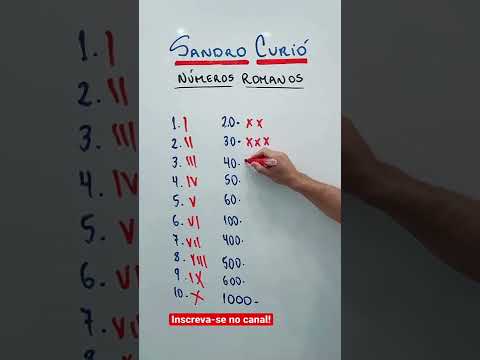 SANDRO CURIÓ
NÚMEROS ROMANOS
1. I
2. II
3. III
4. IV
5. V
6. VI
7. VII
8. VIII
9. IX
10. X
20- XX
30- XXX
40-
50-
60-
100-
400-
500-
600-
1000-
Inscreva-se no canal!